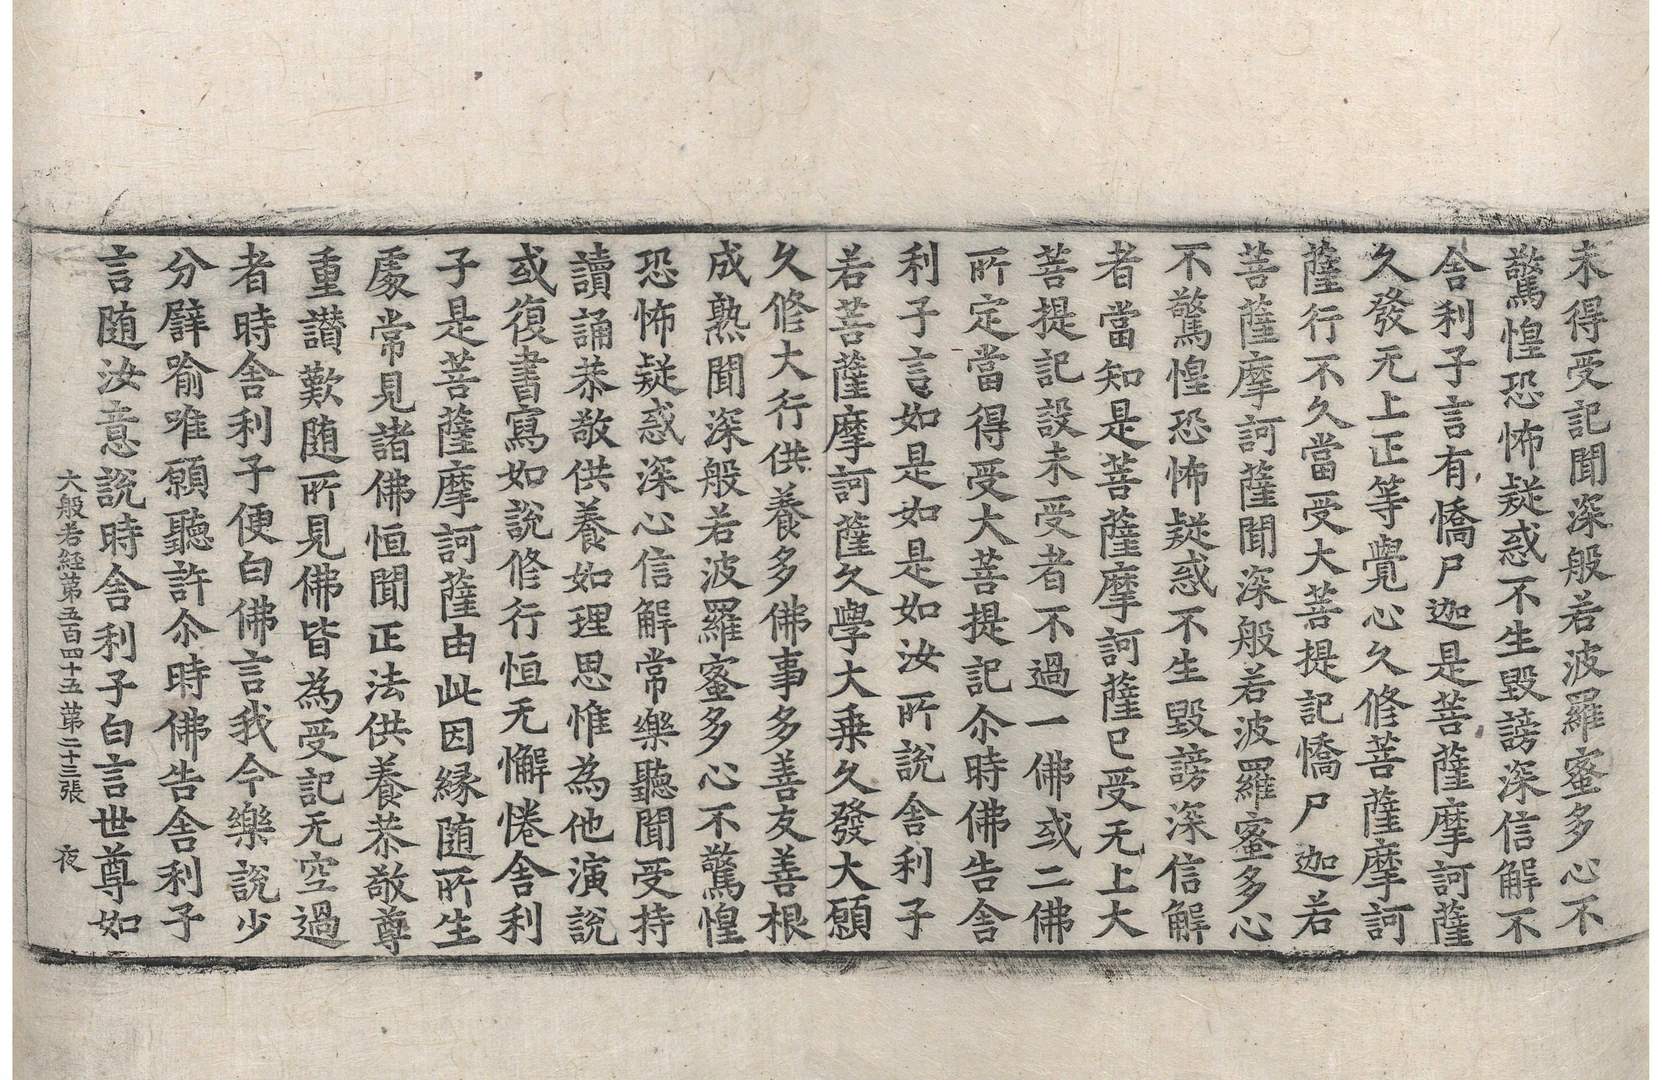 未得受記聞深般若波羅蜜多心不
驚惶恐怖疑惑不生毀謗深信解不
舍利子言有憍尸迦是菩薩摩訶薩
久發无上正等覺心久修菩薩摩訶
薩行不久當受大菩提記憍尸迦若
菩薩摩訶薩聞深般若波羅蜜多心
不驚惶恐怖疑惑不生毀謗深信解
者當知是菩薩摩訶薩已受无上大
菩提記設未受者不過一佛或二佛
所定當得受大菩提記尒時佛告舍
利子言如是如是如汝所說舍利子
若菩薩摩訶薩久學大乗久發大願
久修大行供養多佛事多善友善根
成熟聞深般若波羅蜜多心不驚惶
恐怖疑惑深心信解常樂聽聞受持
讀誦恭敬供養如理思惟為他演說
或復書寫如說修行恒无懈惓舍利
子是菩薩摩訶薩由此因緣随所生
處常見諸佛恒聞正法供養恭敬尊
重讃歎随所見佛皆為受記无空過
者時舍利子便白佛言我今樂說少
分譬喻唯願聽許尒時佛告舍利子
言随汝意說時舍利子白言世尊如
大般若經第五百四十五 第二十三張 夜